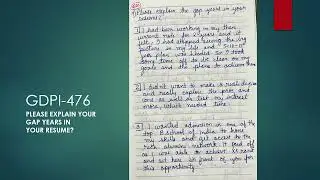 GDPI-476
PLEASE EXPLAIN YOUR
GAP YEARS IN
YOUR RESUME?
Please explain the gap years in your
resume?
1) I had been working in my then
current role for 2 years and I
felt, I had stopped seeing the big
picture in my life and
year plan was needed. So I took
some time off to be clear on my
goals and the plans to achieve them
2) I didn't want to make a rash decision
and really explore the pros and
cons as well as test my interest
more, which needed time
3) I wanted admission in one of the
top B school of India to hone
my skills and get access to the
rich alumni network. It paid off
as I was able to achieve
and sit here in front of you for
this opportunity.